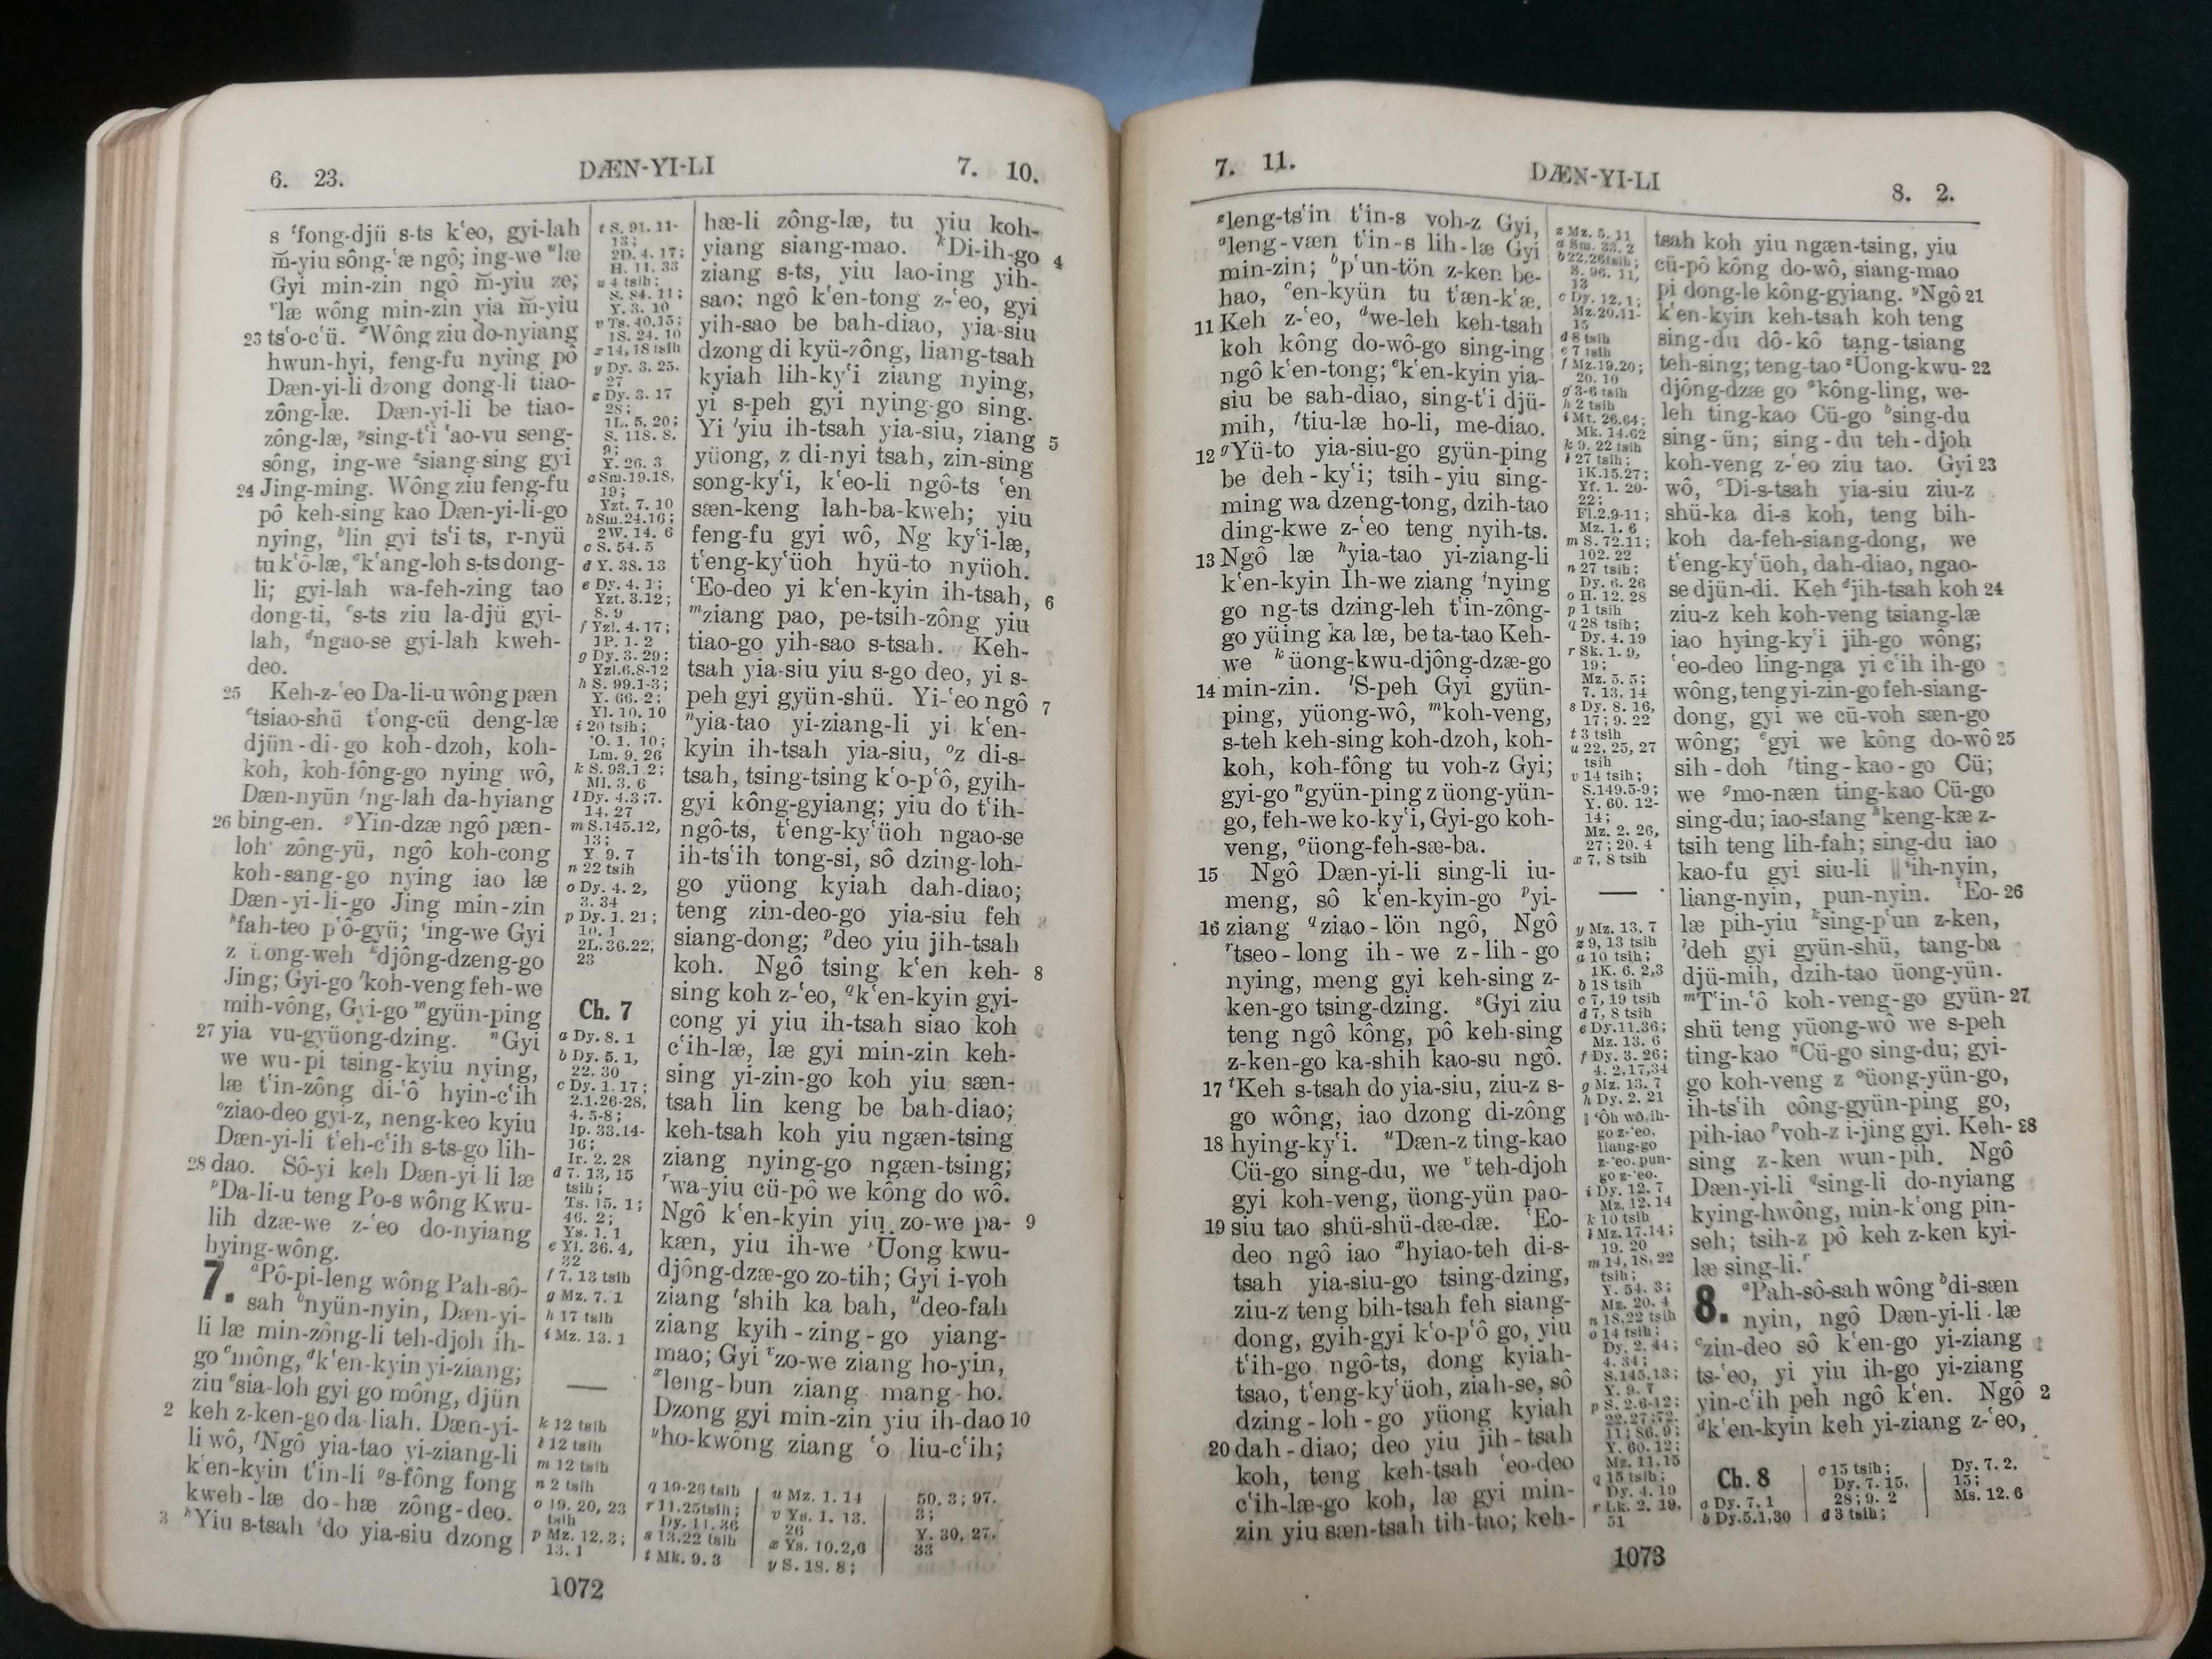 6. 23.
DÆN-YI-LI
7. 10.
s ʻfong-djü s-ts k'eo, gyi-lah
m̆-yiu sông-ʻæ ngô; ing-we ᵘlæ
Gyi min-zin ngô m̆-yiu ze;
ᵛlæ wông min-zin yia m̆-yiu
23 ts'o-c'ü. ˣWông ziu do-nyiang
hwun-hyi, feng-fu nying pô
Dæn-yi-li dzong dong-li tiao-
zông-læ. Dæn-yi-li be tiao-
zông-læ, ʸsing-t'i ʻao-vu seng-
sông, ing-we ᶻsiang-sing gyi
24 Jing-ming. Wông ziu feng-fu
pô keh-sing kao Dæn-yi-li-go
nying, ᵇlin gyi ts'i ts, r-nyü
tu k'ô-læ, ᵃk'ang-loh s-ts dong-
li; gyi-lah wa-feh-zing tao
dong-ti, ᶜs-ts ziu la-djü gyi-
lah, ᵈngao-se gyi-lah kweh-
deo.
25 Keh-z-ʻeo Da-li-u wông pæn
ᵉtsiao-shü t'ong-cü deng-læ
djün-di-go koh-dzoh, koh-
koh, koh-fông-go nying wô,
Dæn-nyün ᶠng-lah da-hyiang
26 bing-en. ᵍYin-dzæ ngô pæn-
loh zông-yü, ngô koh-cong
koh-sang-go nying iao læ
Dæn-yi-li-go Jing min-zin
ʰfah-teo p'ô-gyü; ⁱing-we Gyi
z üong-weh ᵏdjông-dzeng-go
Jing; Gyi-go ˡkoh-veng feh-we
mih-vông, Gyi-go ᵐgyün-ping
27 yia vu-gyüong-dzing. ⁿGyi
we wu-pi tsing-kyiu nying,
læ t'in-zông di-ʻô hyin-c'ih
ᵒziao-deo gyi-z, neng-keo kyiu
Dæn-yi-li t'eh-c'ih s-ts-go lih-
28 dao. Sô-yi keh Dæn-yi-li læ
ᵖDa-li-u teng Po-s wông Kwu-
lih dzæ-we z-ʻeo do-nyiang
hying-wông.
7. ᵃPô-pi-leng wông Pah-sô-
sah ᵇnyün-nyin, Dæn-yi-
li læ min-zông-li teh-djoh ih-
go ᶜmông, ᵈk'en-kyin yi-ziang;
ziu ᵉsia-loh gyi go mông, djün
2 keh z-ken-go da-liah. Dæn-yi-
li wô, ᶠNgô yia-tao yi-ziang-li
k'en-kyin t'in-li ᵍs-fông fong
kweh-læ do-hæ zông-deo.
3 ʰYiu s-tsah ⁱdo yia-siu dzong
t S. 91. 11-
13;
2D. 4. 17;
H. 11. 33
u 4 tsih;
S. 84. 11;
Y. 3. 10
v Ts. 40.15;
1S. 24. 10
x 14, 18 tsih
y Dy. 3. 25.
27
z Dy. 3. 17
28;
1L. 5. 20;
S. 118. 8.
9;
Y. 26. 3
a Sm.19.18,
19;
Yzt. 7. 10
b Sm.24.16;
2W. 14. 6
c S. 54. 5
d Y. 38. 13
e Dy. 4. 1;
Yzt. 3.12;
S. 9
f Yzl. 4. 17;
1P. 1. 2
g Dy. 3. 29;
Yzl.6.8-12
h S. 99.1-3;
Y. 66. 2;
Yl. 10. 10
i 20 tsih;
ʻO. 1. 10;
Lm. 9. 26
k S. 93.1.2;
Ml. 3. 6
l Dy. 4.3;7.
14, 27
m S.145.12,
13;
Y. 9. 7
n 22 tsih
o Dy. 4. 2,
3. 34
p Dy. 1. 21;
10. 1
2L.36.22,
23
Ch. 7
a Dy. 8. 1
b Dy. 5. 1,
22. 30
c Dy. 1. 17;
2.1.26-28,
4. 5-8;
1p. 33.14-
16;
Ir. 2. 28
d 7. 13, 15
tsih;
Ts. 15. 1;
46. 2;
Ys. 1. 1
e Yl. 36. 4,
32
f 7, 13 tsih
g Mz. 7. 1
h 17 tsih
i Mz. 13. 1
k 12 tsih
l 12 tsih
m 12 tsih
n 2 tsih
o 19. 20, 23
tsih
p Mz. 12. 3;
13. 1
hæ-li zông-læ, tu yiu koh-
yiang siang-mao. ᵏDi-ih-go 4
ziang s-ts, yiu lao-ing yih-
sao: ngô k'en-tong z-ʻeo, gyi
yih-sao be bah-diao, yia-siu
dzong di kyü-zông, liang-tsah
kyiah lih-ky'i ziang nying,
yi s-peh gyi nying-go sing.
Yi ˡyiu ih-tsah yia-siu, ziang 5
yüong, z di-nyi tsah, zin-sing
song-ky'i, k'eo-li ngô-ts ʻen
sæn-keng lah-ba-kweh; yiu
feng-fu gyi wô, Ng ky'i-læ,
t'eng-ky'üoh hyü-to nyüoh.
ʻEo-deo yi k'en-kyin ih-tsah, 6
ᵐziang pao, pe-tsih-zông yiu
tiao-go yih-sao s-tsah. Keh-
tsah yia-siu yiu s-go deo, yi s-
peh gyi gyün-shü. Yi-ʻeo ngô 7
ⁿyia-tao yi-ziang-li yi k'en-
kyin ih-tsah yia-siu, ᵒz di-s-
tsah, tsing-tsing k'o-p'ô, gyih-
gyi kông-gyiang; yiu do t'ih-
ngô-ts, t'eng-ky'üoh ngao-se
ih-ts'ih tong-si, sô dzing-loh-
go yüong kyiah dah-diao;
teng zin-deo-go yia-siu feh
siang-dong; ᵖdeo yiu jih-tsah
koh. Ngô tsing k'en keh- 8
sing koh z-ʻeo, ᑫk'en-kyin gyi-
cong yi yiu ih-tsah siao koh
c'ih-læ, læ gyi min-zin keh-
sing yi-zin-go koh yiu sæn-
tsah lin keng be bah-diao;
keh-tsah koh yiu ngæn-tsing
ziang nying-go ngæn-tsing;
ʳwa-yiu cü-pô we kông do wô.
Ngô k'en-kyin yiu zo-we pa- 9
kæn, yiu ih-we ˢÜong kwu-
djông-dzæ-go zo-tih; Gyi i-voh
ziang ᵗshih ka bah, ᵘdeo-fah
ziang kyih-zing-go yiang-
mao; Gyi ᵛzo-we ziang ho-yin,
ˣleng-bun ziang mang-ho.
Dzong gyi min-zin yiu ih-dao 10
ʸho-kwông ziang ʻo liu-c'ih;
q 19-26 tsih
r 11.25tsih;
Dy. 11. 36
s 13.22 tsih
t Mk. 9. 3
u Mz. 1. 14
v Ys. 1. 13.
26
x Ys. 10.2,6
y S. 18. 8;
50. 3; 97.
3;
Y. 30. 27,
33
1072
7. 11.
DÆN-YI-LI
8. 2.
ᶻleng-ts'in t'in-s voh-z Gyi,
ᵃleng-væn t'in-s lih-læ Gyi
min-zin; ᵇp'un-tön z-ken be-
hao, ᶜen-kyün tu t'æn-k'æ.
11 Keh z-ʻeo, ᵈwe-leh keh-tsah
koh kông do-wô-go sing-ing
ngô k'en-tong; ᵉk'en-kyin yia-
siu be sah-diao, sing-t'i djü-
mih, ᶠtiu-læ ho-li, me-diao.
12 ᵍYü-to yia-siu-go gyün-ping
be deh-ky'i; tsih-yiu sing-
ming wa dzeng-tong, dzih-tao
ding-kwe z-ʻeo teng nyih-ts.
13 Ngô læ ʰyia-tao yi-ziang-li
k'en-kyin Ih-we ziang ⁱnying
go ng-ts dzing-leh t'in-zông-
go yüing ka læ, be ta-tao Keh-
we ᵏüong-kwu-djông-dzæ-go
14 min-zin. ˡS-peh Gyi gyün-
ping, yüong-wô, ᵐkoh-veng,
s-teh keh-sing koh-dzoh, koh-
koh, koh-fông tu voh-z Gyi;
gyi-go ⁿgyün-ping z üong-yün-
go, feh-we ko-ky'i, Gyi-go koh-
veng, ᵒüong-feh-sæ-ba.
15 Ngô Dæn-yi-li sing-li iu-
meng, sô k'en-kyin-go ᵖyi-
16 ziang ᑫziao-lön ngô, Ngô
ʳtseo-long ih-we z-lih-go
nying, meng gyi keh-sing z-
ken-go tsing-dzing. ˢGyi ziu
teng ngô kông, pô keh-sing
z-ken-go ka-shih kao-su ngô.
17 ᵗKeh s-tsah do yia-siu, ziu-z s-
go wông, iao dzong di-zông
18 hying-ky'i. ᵘDæn-z ting-kao
Cü-go sing-du, we ᵛteh-djoh
gyi koh-veng, üong-yün pao-
19 siu tao shü-shü-dæ-dæ. ʻEo-
deo ngô iao ˣhyiao-teh di-s-
tsah yia-siu-go tsing-dzing,
ziu-z teng bih-tsah feh siang-
dong, gyih-gyi k'o-p'ô go, yiu
t'ih-go ngô-ts, dong kyiah-
tsao, t'eng-ky'üoh, ziah-se, sô
dzing-loh-go yüong kyiah
20 dah-diao; deo yiu jih-tsah
koh, teng keh-tsah ʻeo-deo
c'ih-læ-go koh, læ gyi min-
zin yiu sæn-tsah tih-tao; keh-
z Mz. 5. 11
a Sm. 33. 2
b 22,26tsih;
S. 96. 11,
13
c Dy. 12. 1;
Mz.20.11-
15
d 8 tsih
e 7 tsih
f Mz.19.20;
20. 10
g 3-6 tsih
h 2 tsih
i Mt. 26.64;
Mk. 14.62
k 9, 22 tsih
l 27 tsih;
1K.15.27;
Yf. 1. 20-
22;
Fl.2.9-11;
Mz. 1. 6
m S. 72.11;
102. 22
n 27 tsih;
Dy. 6. 26
o H. 12. 28
p 1 tsih
q 28 tsih;
Dy. 4. 19
r Sk. 1. 9,
19;
Mz. 5. 5;
7. 13, 14
s Dy. 8. 16,
17; 9. 22
t 3 tsih
u 22, 25, 27
tsih
v 14 tsih;
S.149.5-9;
Y. 60. 12-
14;
Mz. 2. 26,
27; 20. 4
x 7, 8 tsih
y Mz. 13. 7
z 9, 13 tsih
a 10 tsih;
1K. 6. 2,3
b 18 tsih
c 7, 19 tsih
d 7, 8 tsih
e Dy.11.36;
Mz. 13. 6
f Dy. 3. 26;
4. 2,17,34
g Mz. 13. 7
h Dy. 2. 21
‖ ʻÔh wô, ih-
go z-ʻeo,
liang-go
z-ʻeo, pun-
go z-ʻeo.
i Dy. 12. 7
Mz. 12. 14
k 10 tsih
l Mz. 17.14;
19. 20
m 14, 18, 22
tsih;
Y. 54. 3;
Mz. 20. 4
n 18.22 tsih
o 14 tsih;
Dy. 2. 44;
4. 34;
S.145.13;
Y. 9. 7
p S. 2.6-12;
22.27;72.
11; 86. 9;
Y. 60. 12;
Mz. 11.15
q 15 tsih;
Dy. 4. 19
r Lk. 2. 19,
51
tsah koh yiu ngæn-tsing, yiu
cü-pô kông do-wô, siang-mao
pi dong-le kông-gyiang. ʸNgô 21
k'en-kyin keh-tsah koh teng
sing-du dô-kô tang-tsiang
teh-sing; teng-tao ᶻÜong-kwu- 22
djông-dzæ go ᵃkông-ling, we-
leh ting-kao Cü-go ᵇsing-du
sing-ün; sing-du teh-djoh
koh-veng z-ʻeo ziu tao. Gyi 23
wô, ᶜDi-s-tsah yia-siu ziu-z
shü-ka di-s koh, teng bih-
koh da-feh-siang-dong, we
t'eng-ky'üoh, dah-diao, ngao-
se djün-di. Keh ᵈjih-tsah koh 24
ziu-z keh koh-veng tsiang-læ
iao hying-ky'i jih-go wông;
ʻeo-deo ling-nga yi c'ih ih-go
wông, teng yi-zin-go feh-siang-
dong, gyi we cü-voh sæn-go
wông; ᵉgyi we kông do-wô 25
sih-doh ᶠting-kao-go Cü;
we ᵍmo-næn ting-kao Cü-go
sing-du; iao-siang ʰkeng-kæ z-
tsih teng lih-fah; sing-du iao
kao-fu gyi siu-li ‖ⁱih-nyin,
liang-nyin, pun-nyin. ʻEo- 26
læ pih-yiu ᵏsing-p'un z-ken,
ˡdeh gyi gyün-shü, tang-ba
djü-mih, dzih-tao üong-yün.
ᵐT'in-ʻô koh-veng-go gyün- 27
shü teng yüong-wô we s-peh
ting-kao ⁿCü-go sing-du; gyi-
go koh-veng z ᵒüong-yün-go,
ih-ts'ih công-gyün-ping go,
pih-iao ᵖvoh-z i-jing gyi. Keh- 28
sing z-ken wun-pih. Ngô
Dæn-yi-li ᑫsing-li do-nyiang
kying-hwông, min-k'ong pin-
seh; tsih-z pô keh z-ken kyi-
læ sing-li.ʳ
8. ᵃPah-sô-sah wông ᵇdi-sæn
nyin, ngô Dæn-yi-li læ
ᶜzin-deo sô k'en-go yi-ziang
ts-ʻeo, yi yiu ih-go yi-ziang
yin-c'ih peh ngô k'en. Ngô 2
ᵈk'en-kyin keh yi-ziang z-ʻeo,
Ch. 8
a Dy. 7. 1
b Dy.5.1,30
c 15 tsih;
Dy. 7. 15,
28; 9. 2
d 3 tsih;
Dy. 7. 2,
15;
Ms. 12. 6
1073